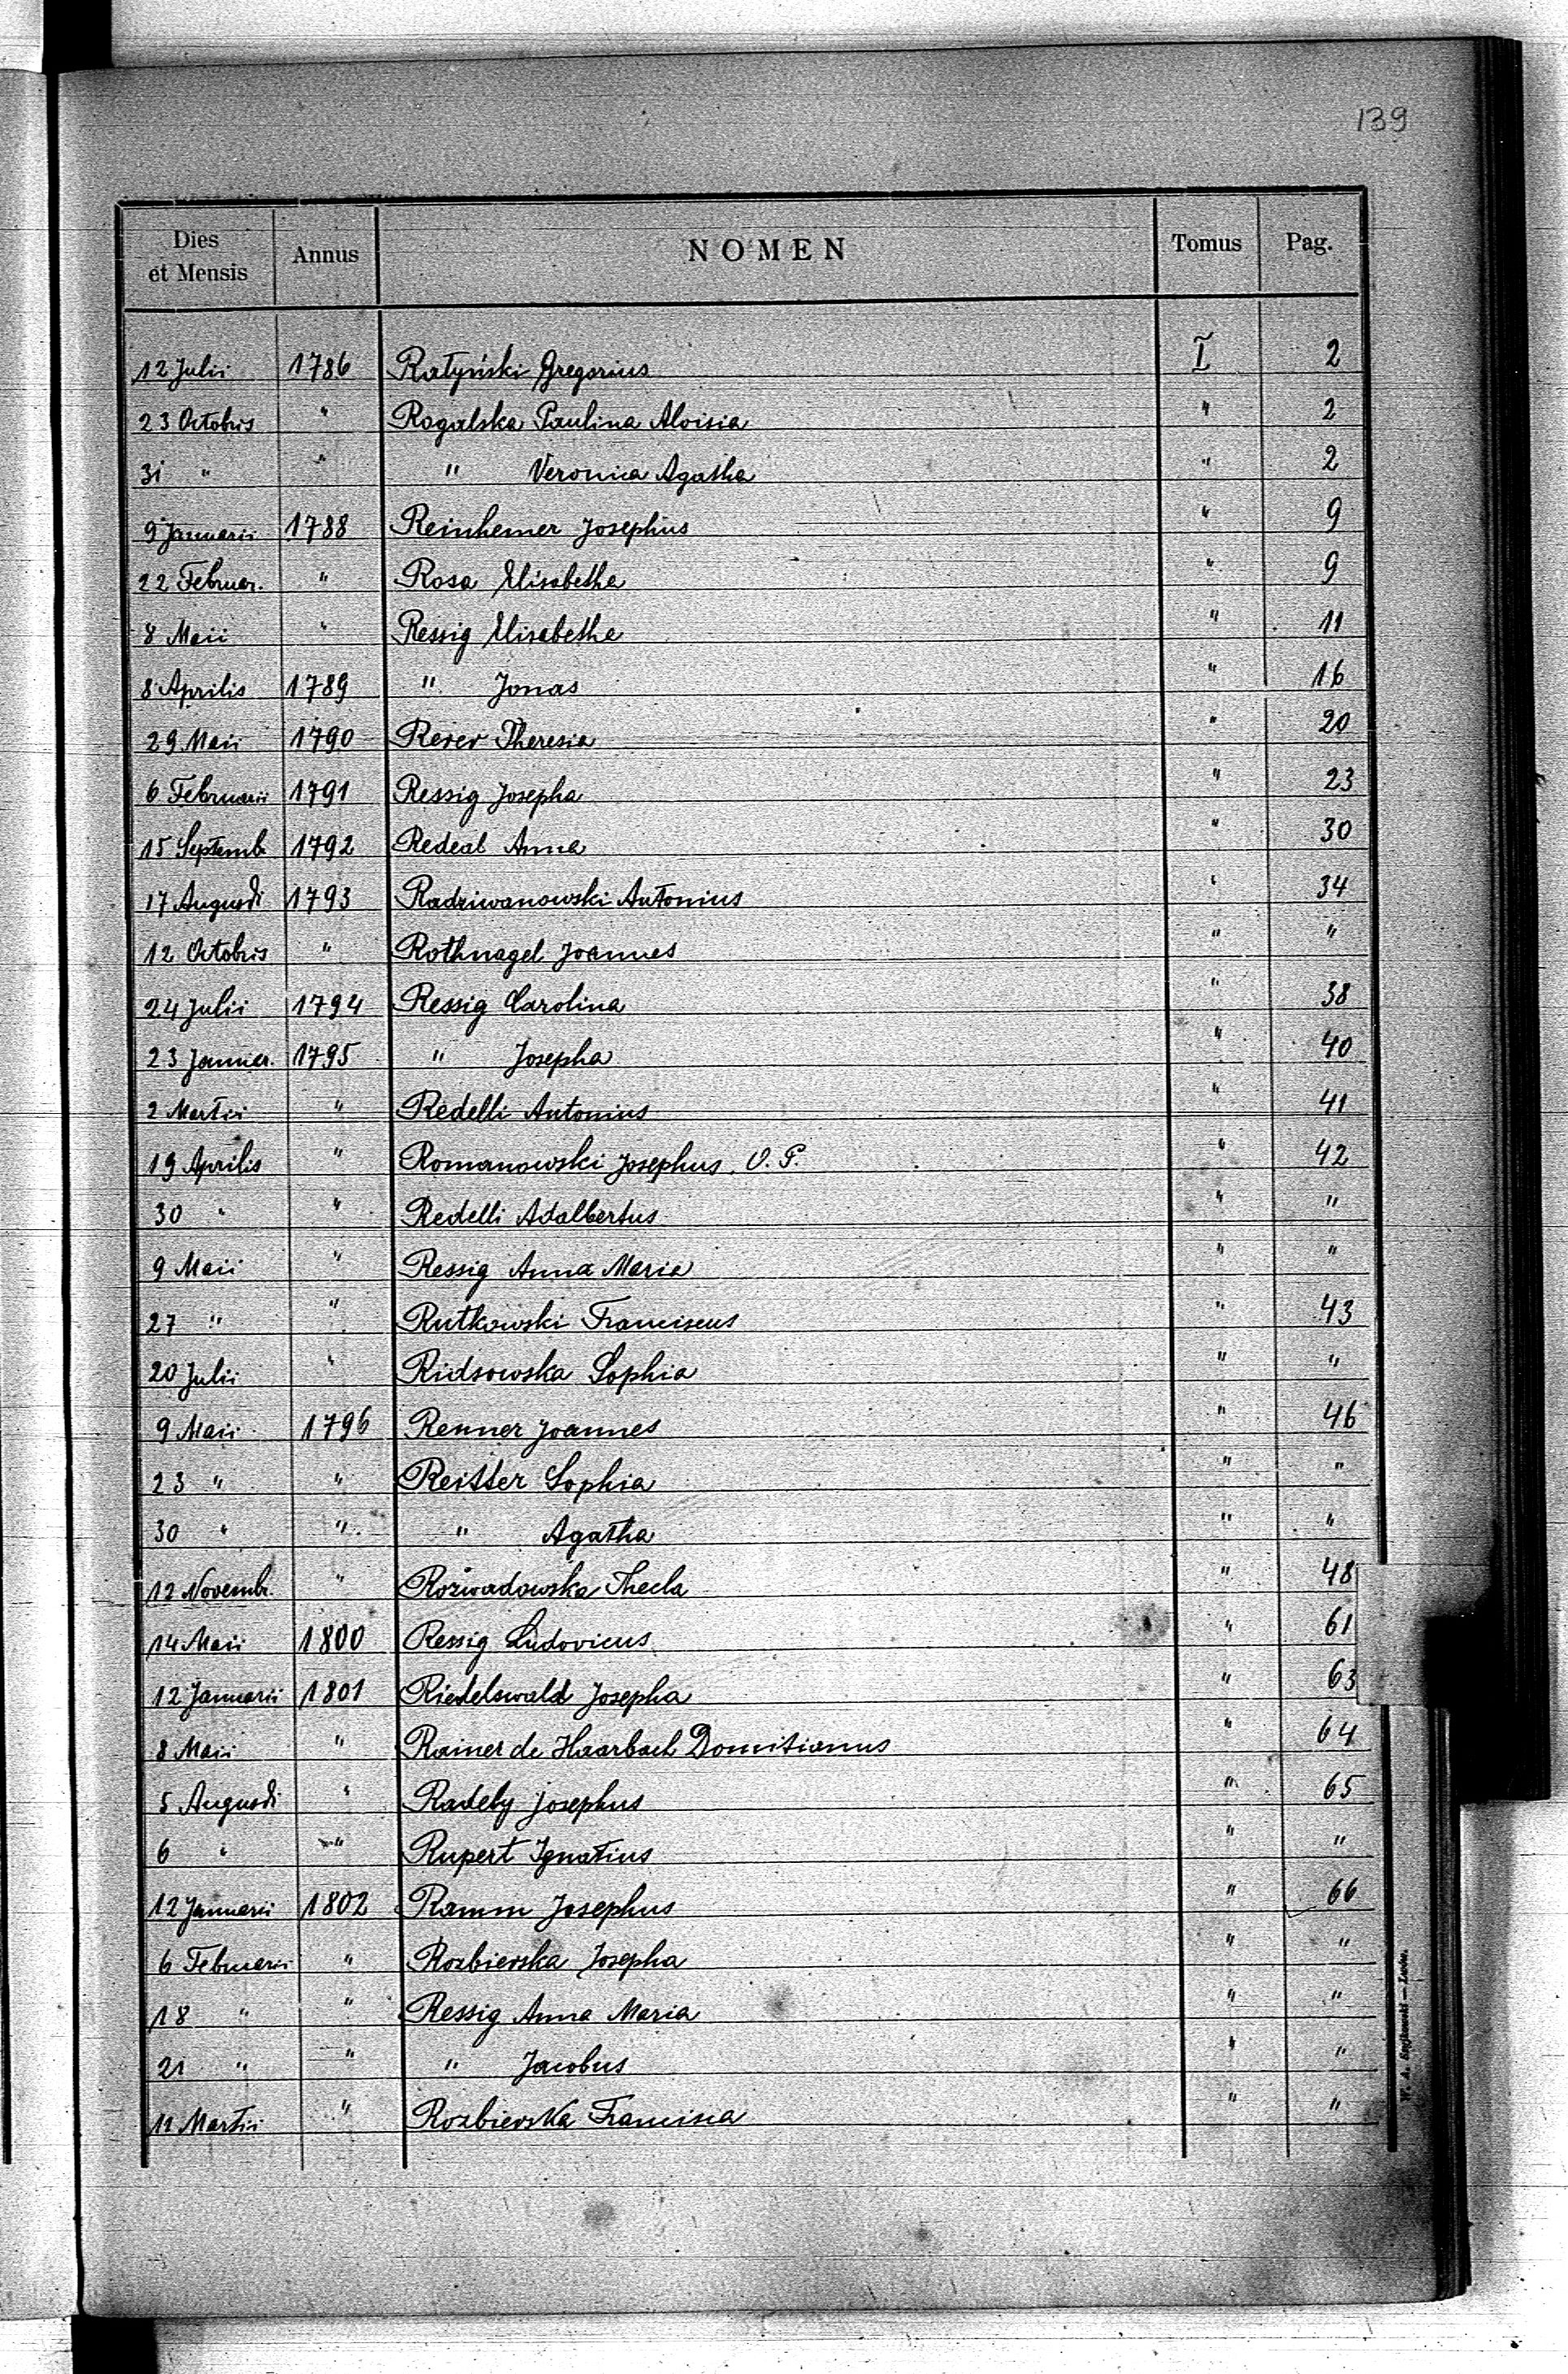 139
Dies et Mensis Annus NOMEN Tomus Pag.
12 Julii 1786 Ratyński Gregorius I 2
23 Octobris " Rogalska Paulina Aloisia " 2
31 " " " Veronica Agatha " 2
9 Januarii 1788 Reinhemer Josephus " 9
22 Februar. " Rosa Elisabetha " 9
8 Maii " Ressig Elisabetha " 11
8 Aprilis 1789 " Jonas " 16
29 Maii 1790 Rerer Theresia " 20
6 Februarii 1791 Ressig Josepha " 23
15 Septemb. 1792 Redeal Anna " 30
17 Augusti 1793 Radziwanowski Antonius " 34
12 Octobris " Rothnagel Joannes " "
24 Julii 1794 Ressig Carolina " 38
23 Januar. 1795 " Josepha " 40
2 Martii " Redelli Antonius " 41
19 Aprilis " Romanowski Josephus, O. P. " 42
30 " " Redelli Adalbertus " "
9 Maii " Ressig Anna Maria " "
27 " " Rutkowski Franciscus " 43
20 Julii " Ridsowska Sophia " "
9 Maii 1796 Renner Joannes " 46
23 " " Reitter Sophia " "
30 " " " Agatha " "
12 Novembr. " Rozwadowska Thecla " 48
14 Maii 1800 Ressig Ludovicus " 61
12 Januarii 1801 Riedelswald Josepha " 63
8 Maii " Rainer de Haarbach Domitianus " 64
5 Augusti " Radeby Josephus " 65
6 " " Rupert Ignatius " "
12 Januarii 1802 Ramm Josephus " 66
6 Februarii " Rozbierska Josepha " "
18 " " Ressig Anna Maria " "
21 " " " Jacobus " "
11 Martii " Rozbierska Francisca " "